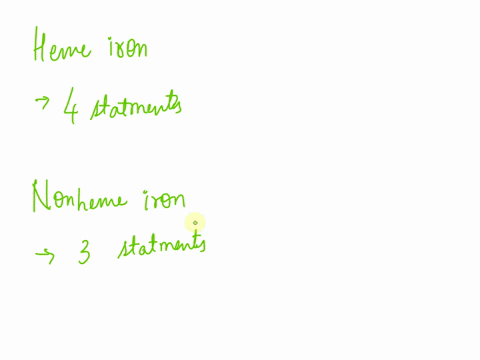 Heme iron
→ 4 statments
Nonheme iron
→ 3 statments